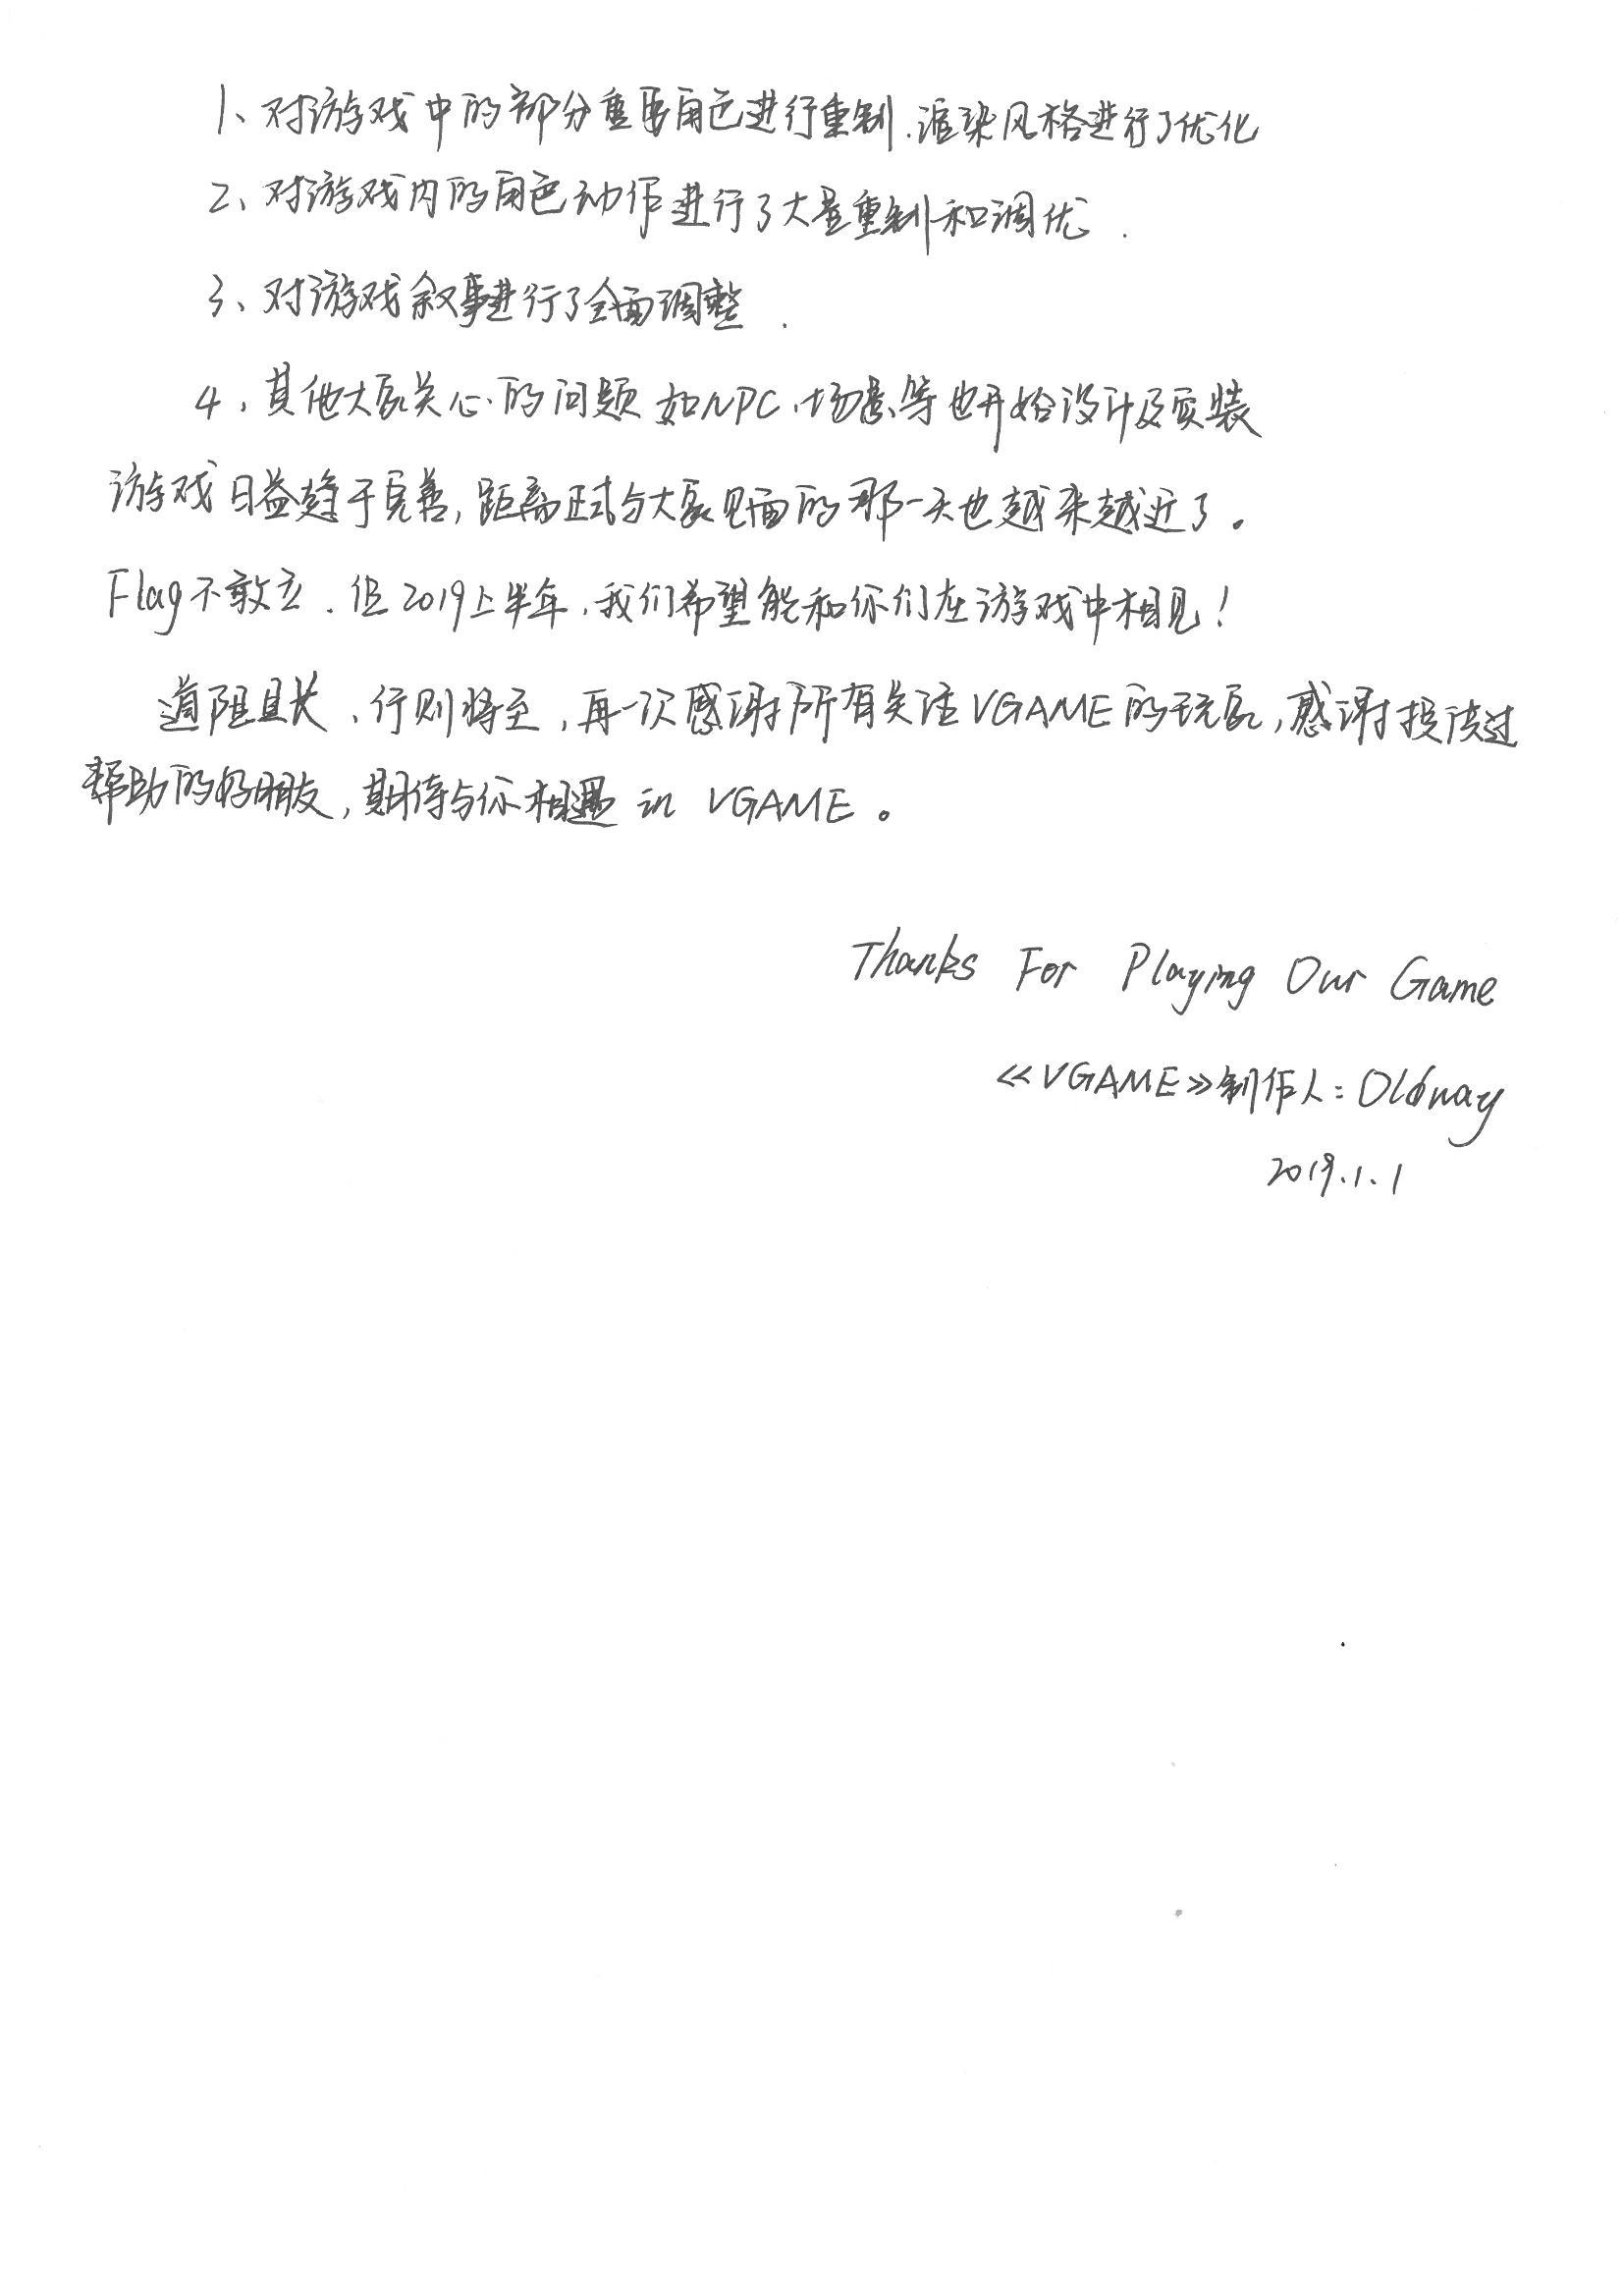 1、对游戏中的部分重要角色进行重制.渲染风格进行了优化
2、对游戏内的角色动作进行了大量重制和调优.
3、对游戏叙事进行了全面调整.
4、其他大家关心的问题如NPC、场景等也开始设计及安装
游戏日益趋于完善,距离正式与大家见面的那一天也越来越近了。
Flag不敢立.但2019上半年,我们希望能和你们在游戏中相见!
道阻且长、行则将至,再一次感谢所有关注VGAME的玩家,感谢提供过
帮助的好朋友,期待与你相遇in VGAME。
Thanks For Playing Our Game
《VGAME》制作人:
2019.1.1